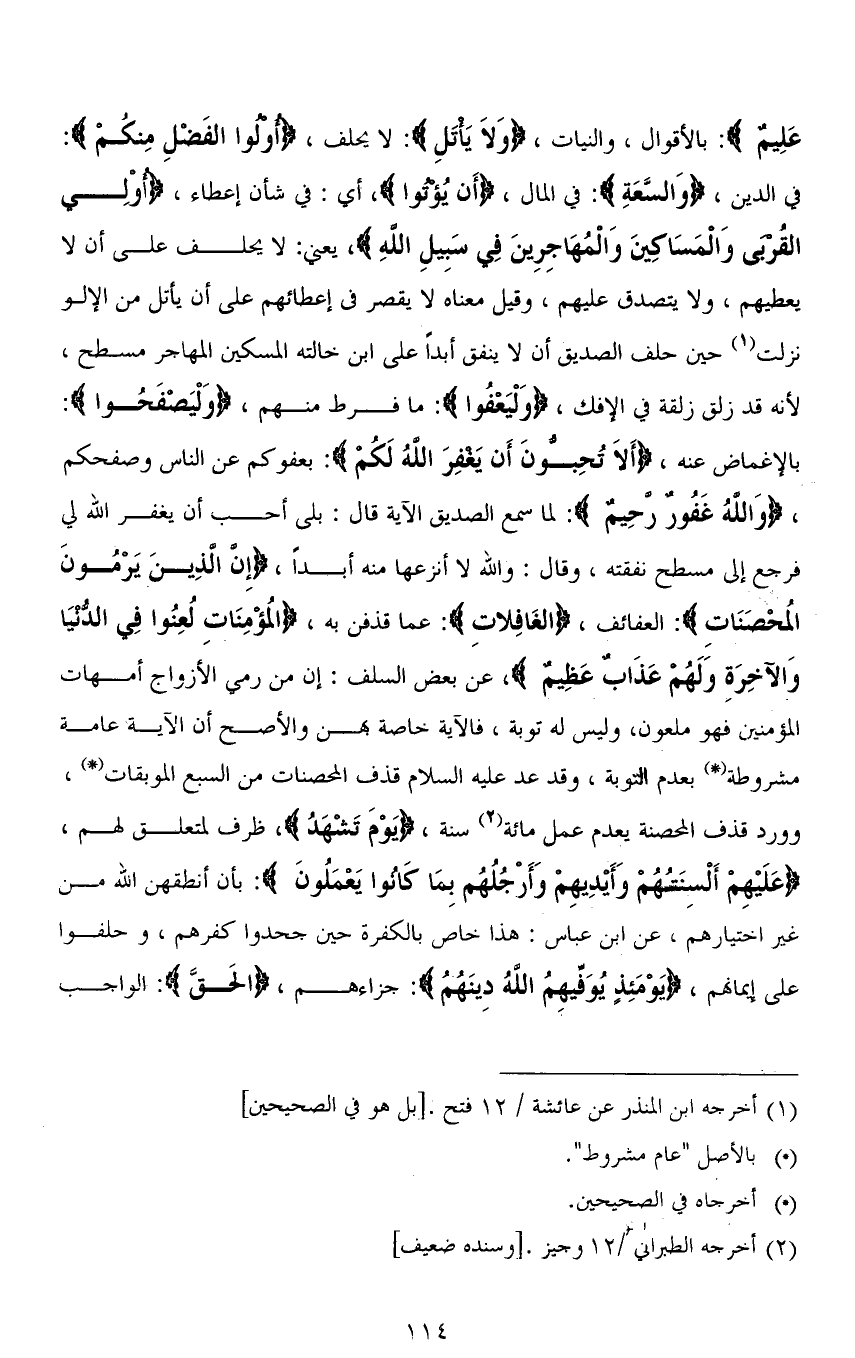 عَلِيمٌ ﴾: بالأقوال ، والنيات ، ﴿وَلَا يَأْتَلِ﴾: لا يحلف ، ﴿أُوْلُوا الفَضْلِ مِنكُمْ ﴾:
في الدين ، ﴿وَالسَّعَةِ ﴾: في المال ، ﴿أَن يُؤْتُوا ﴾، أي : في شأن إعطاء ، ﴿أُوْلِي
القُرْبَى وَالْمَسَاكِينَ وَالْمُهَاجِرِينَ فِي سَبِيلِ اللَّهِ ﴾، يعني: لا يحلف على أن لا
يعطيهم ، ولا يتصدق عليهم ، وقيل معناه لا يقصر فى إعطائهم على أن يأتل من الإلو
نزلت(١) حين حلف الصديق أن لا ينفق أبداً على ابن خالته المسكين المهاجر مسطح ،
لأنه قد زلق زلقة في الإفك ، ﴿وَلْيَعْفُوا ﴾: ما فرط منهم ، ﴿وَلْيَصْفَحُوا ﴾:
بالإغماض عنه ، ﴿أَلاَ تُحِبُّونَ أَن يَغْفِرَ اللَّهُ لَكُمْ ﴾: بعفوكم عن الناس وصفحكم
، ﴿وَاللَّهُ غَفُورٌ رَّحِيمٌ ﴾: لما سمع الصديق الآية قال : بلى أحب أن يغفر الله لي
فرجع إلى مسطح نفقته ، وقال : والله لا أنزعها منه أبداً ، ﴿إِنَّ الَّذِينَ يَرْمُونَ
الْمُحْصَنَاتِ ﴾: العفائف ، ﴿الغَافِلاتِ ﴾: عما قذفن به ، ﴿الْمُؤْمِنَاتِ لُعِنُوا فِي الدُّنْيَا
وَالآخِرَةِ وَلَهُمْ عَذَابٌ عَظِيمٌ ﴾، عن بعض السلف : إن من رمي الأزواج أمهات
المؤمنين فهو ملعون، وليس له توبة ، فالآية خاصة بهن والأصح أن الآية عامة
مشروطة(*) بعدم التوبة ، وقد عد عليه السلام قذف المحصنات من السبع الموبقات(*) ،
وورد قذف المحصنة يعدم عمل مائة(٢) سنة ، ﴿يَوْمَ تَشْهَدُ ﴾، ظرف لمتعلق لهم ،
﴿عَلَيْهِمْ أَلْسِنَتُهُمْ وَأَيْدِيهِمْ وَأَرْجُلُهُم بِمَا كَانُوا يَعْمَلُونَ ﴾: بأن أنطقهن الله من
غير اختيارهم ، عن ابن عباس : هذا خاص بالكفرة حين جحدوا كفرهم ، و حلفوا
على إيمانهم ، ﴿يَوْمَئِذٍ يُوَفِّيهِمُ اللَّهُ دِينَهُمُ ﴾: جزاءهم ، ﴿الْحَقَّ ﴾: الواجب
(١) أخرجه ابن المنذر عن عائشة / ١٢ فتح .[بل هو في الصحيحين]
(*) بالأصل "عام مشروط".
(*) أخرجاه في الصحيحين.
(٢) أخرجه الطبراني/١٢ وجيز .[وسنده ضعيف]
١١٤